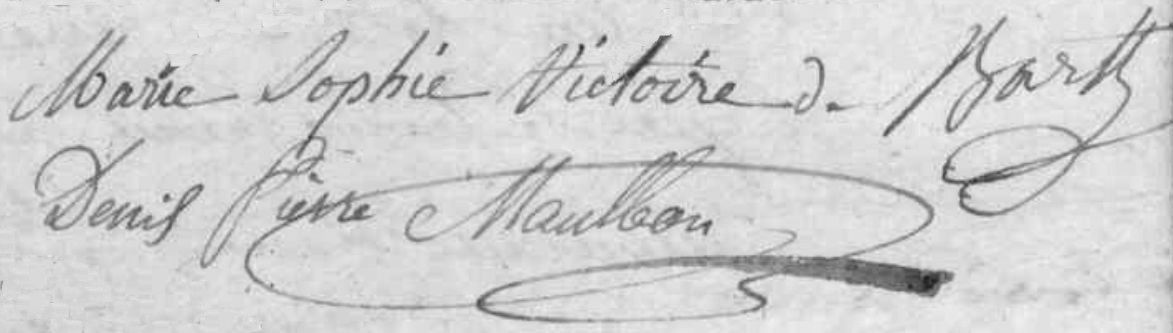 Marie Sophie Victoire d. Barth
Denis Pierre Maulbon